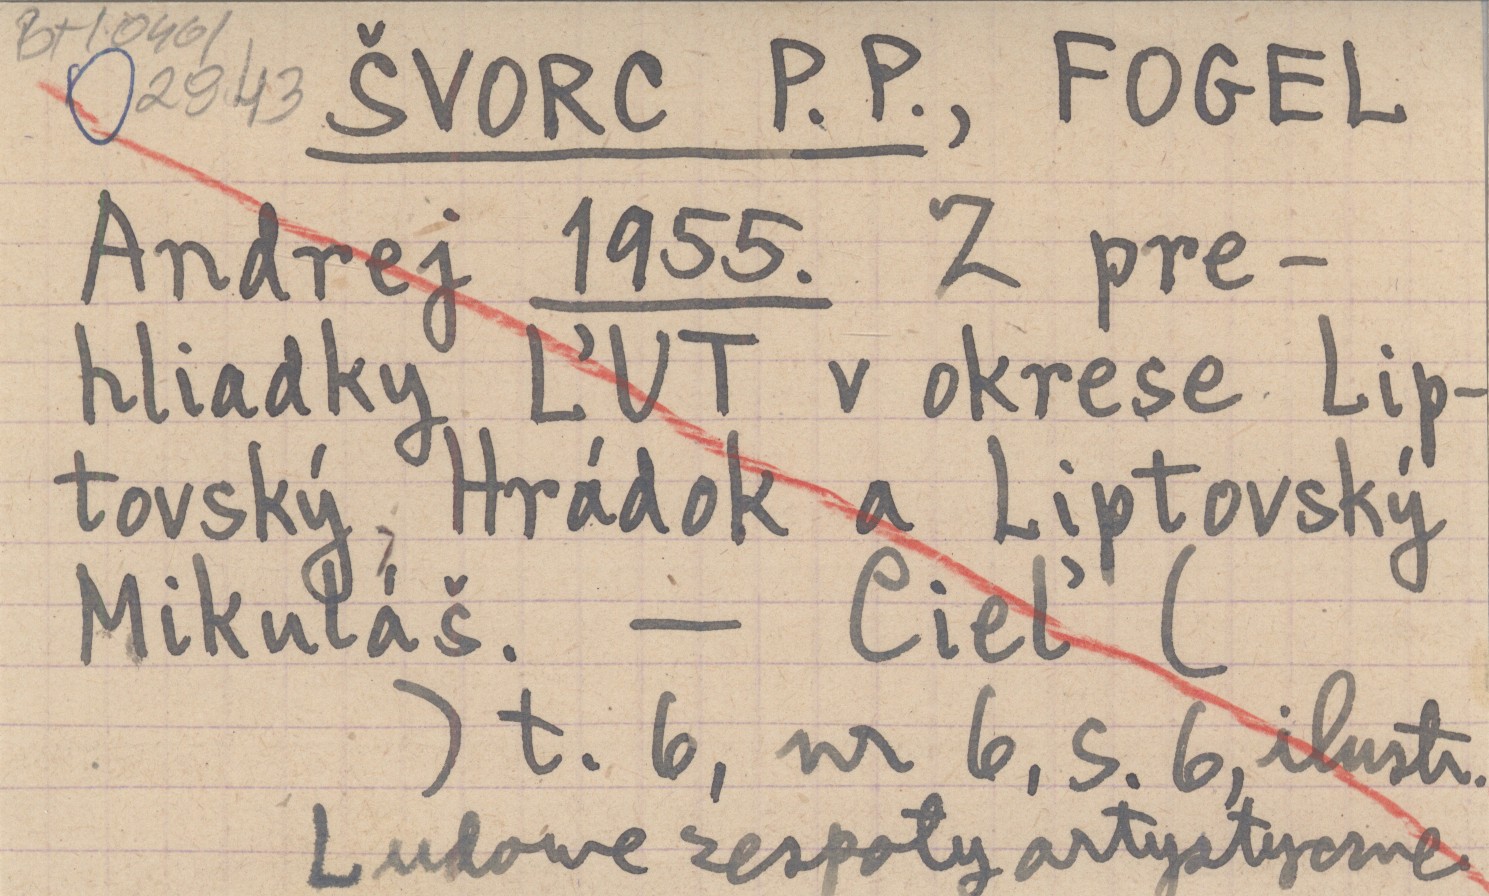 2943
ŠVORC P.P., FOGEL
Andrej 1955. Z pre-
hliadky ĽUT v okrese Lip-
tovský Hrádok a Liptovský
Mikuláš. — Cieľ (
) t. 6, nr 6, s. 6, ilustr.
Ludowe zespoły artystyczne.